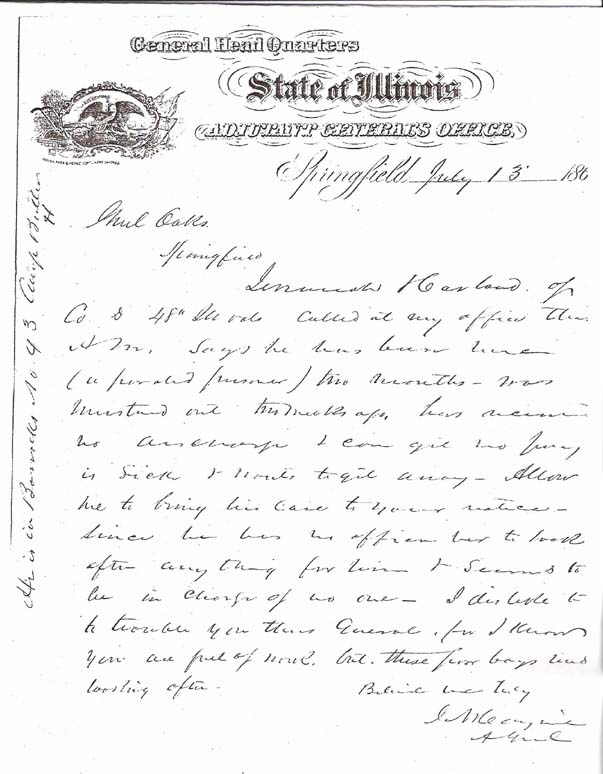 General Head Quarters
State of Illinois
ADJUTANT GENERALS OFFICE,
Springfield July 13 186
Genl Oaks
Springfield
Jeremiah Harland of
Co D 48th Ill vols Called at my office this
A M. Says he has been here
(a paroled prisoner) two months - was
mustered out two weeks ago, has received
no discharge & can get no pay
is Sick & wants to get away - Allow
me to bring his Case to your notice -
Since he has no officer here to look
after anything for him & Seems to
be in Charge of no one - I dislike to
to trouble you thus General, for I know
you are full of work, but these poor boys need
looking after.
Believe me truly
A Genl
He is in Barracks No 43 Camp Butler